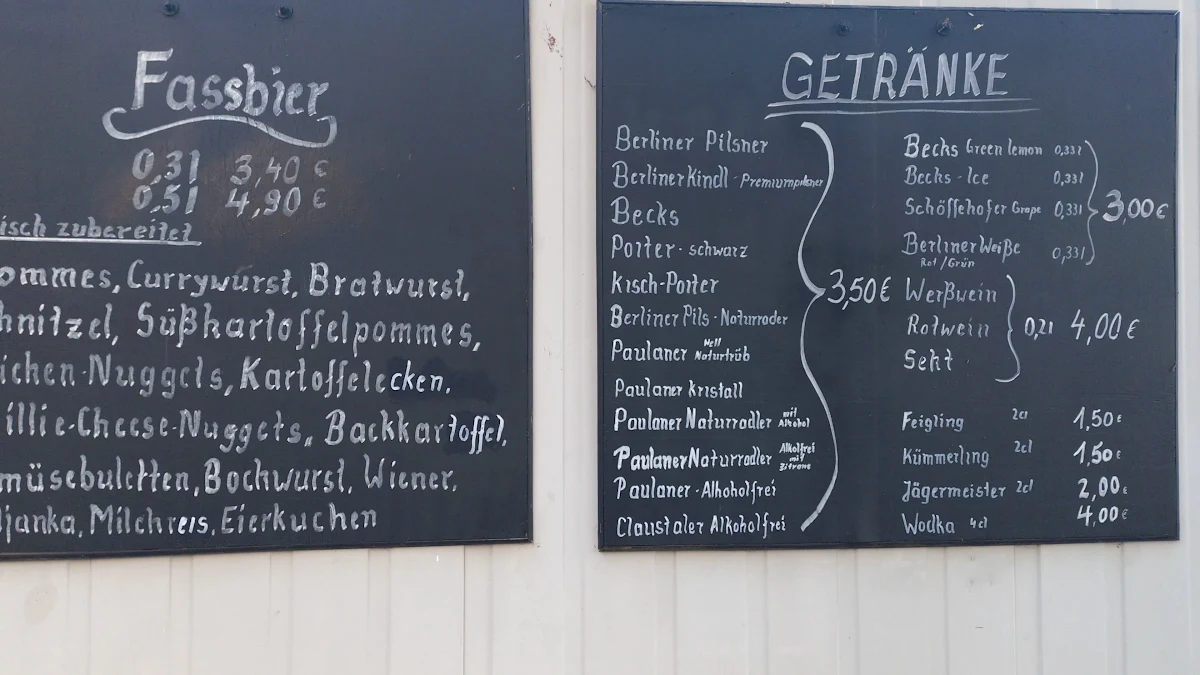 Fassbier
0,3l 3,40 €
0,5l 4,90 €
isch zubereitet
ommes, Currywurst, Bratwurst,
hnitzel, Süßkartoffelpommes,
ichen-Nuggets, Kartoffelecken,
illie-Cheese-Nuggets, Backkartoffel,
müsebuletten, Bockwurst, Wiener,
ljanka, Milchreis, Eierkuchen
GETRÄNKE
Berliner Pilsner
Berliner Kindl - Premiumpilsner
Becks
Porter - schwarz
Kisch-Porter
Berliner Pils - Naturrader
Paulaner Hell Naturtrüb
Paulaner Kristall
Paulaner Naturradler mit Alkohol
Paulaner Naturradler Alkolfrei mit Zitrone
Paulaner - Alkoholfrei
Claustaler Alkoholfrei
3,50 €
Becks Green lemon 0,33l
Becks - Ice 0,33l
Schöffehofer Grape 0,33l
Berliner Weiße 0,33l
Rot/Grün
3,00 €
Weißwein
Rotwein
Sekt
0,2l 4,00 €
Feigling 2cl 1,50 €
Kümmerling 2cl 1,50 €
Jägermeister 2cl 2,00 €
Wodka 4cl 4,00 €